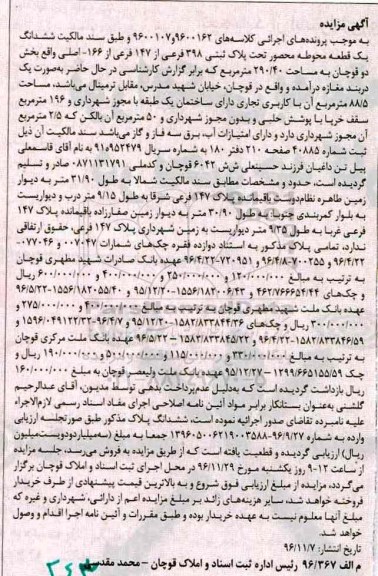 آگهی مزایده
به موجب پرونده‌های اجرائی کلاسه‌های ۹۶۰۰۱۶۲و۹۶۰۰۱۰۷ و طبق سند مالکیت ششدانگ
یک قطعه محوطه محصور تحت پلاک ثبتی ۳۹۸ فرعی از ۱۴۷ فرعی از ۱۶۶- اصلی واقع بخش
دو قوچان به مساحت ۲۹۰/۴۰ مترمربع که برابر گزارش کارشناسی در حال حاضر به‌صورت یک
دربند مغازه درآمده و واقع در قوچان، خیابان شهید مدرس، مقابل ترمینال می‌باشد، مساحت
۸۸/۵ مترمربع آن با کاربری تجاری دارای ساختمان یک طبقه با مجوز شهرداری و ۱۹۶ مترمربع
سقف خرپا با پوشش حلبی و بدون مجوز شهرداری و ۵۰ مترمربع آن بالکن که ۲/۵ مترمربع
آن مجوز شهرداری دارد و دارای امتیازات آب، برق سه فاز و گاز می‌باشد سند مالکیت آن ذیل
ثبت شماره ۴۰۸۸۵ صفحه ۲۱۰ دفتر ۱۸۰ به شماره سریال ۹۵۲۴۷۹ه‌۹۱ به نام آقای قاسمعلی
بیل تن داغیان فرزند حسینعلی ش‌ش ۶۰۴۲ قوچان و کدملی ۰۸۷۱۱۳۱۷۹۱ صادر و تسلیم
گردیده است، حدود و مشخصات مطابق سند مالکیت شمالا به طول ۳۱/۹۰ متر به دیوار
زمین ظاهره نظام‌دوست باقیمانده پلاک ۱۴۷ فرعی شرقا به طول ۹/۱۵ متر درب و دیواریست
به بلوار کمربندی جنوبا: به طول ۳۰/۹۰ متر به دیوار زمین صفارزاده باقیمانده پلاک ۱۴۷
فرعی غربا به طول ۹/۳۵ متر دیواریست به زمین شهرداری پلاک ۱۴۷ فرعی، حقوق ارتفاقی
ندارد، تمامی پلاک مذکور به استناد دوازده فقره چک‌های شمارات ۰۷۷۰۴۷- ۰۷۷۰۴۶
۹۶/۴/۲۲ و ۷۰۰۲۵۵-۹۶/۴/۸ و ۷۲۰۹۵۱-۹۶/۴/۲۲ عهده بانک صادرات شهید مطهری قوچان
به ترتیب به مبالغ ۱۲۰/۰۰۰/۰۰۰ و ۲۵۰/۰۰۰/۰۰۰ و ۴۰۰/۰۰۰/۰۰۰ و ۶۰۰/۰۰۰/۰۰۰ ریال
و چک‌های ۴۶۲/۷۶۶۶۵۴/۴۴ و ۱۵۵۶/۱۸۳۰۰۶/۴۳-۹۵/۱۲/۲۰ و ۱۵۵۶/۱۸۲۰۵۵/۴۰-۹۶/۵/۲۲
عهده بانک ملت شهید مطهری قوچان به ترتیب به مبالغ ۴۰۰/۰۰۰/۰۰۰ و ۲۷۵/۰۰۰/۰۰۰ و
۳۰۰/۰۰۰/۰۰۰ ریال و چک‌های ۱۵۸۲/۸۳۳۸۴۴/۳۶-۹۵/۱۲/۲۰ و ۹۶/۴/۷-۱۵۹۶/۰۴۹۱۲۲/۳۲ و
۱۵۸۲/۸۳۳۸۴۶/۵۹-۹۶/۴/۲۲ و ۱۵۸۲/۸۳۳۸۴۵/۲۲ – ۹۶/۵/۲۲ عهده بانک ملت مرکزی قوچان
به ترتیب به مبالغ ۳۳۰/۰۰۰/۰۰۰ و ۱۱۵/۰۰۰/۰۰۰ و ۵۰۰/۰۰۰/۰۰۰ و ۱۹۰/۰۰۰/۰۰۰ ریال و
چک ۱۲۹۹/۶۶۵۱۵۵/۵۹ – ۹۵/۱۲/۲۷ عهده بانک ملت ولیعصر قوچان به مبلغ ۱۶۰/۰۰۰/۰۰۰
ریال بازداشت گردیده است که به‌دلیل عدم‌پرداخت بدهی توسط مدیون، آقای عبدالرحیم
گلشنی به‌عنوان بستانکار برابر مواد آئین نامه اصلاحی اجرای مفاد اسناد رسمی لازم‌الاجراء
علیه نامبرده تقاضای صدور اجرائیه نموده است، ششدانگ پلاک مذکور طبق صورتجلسه ارزیابی
وارده به شماره ۹۶/۹/۲۷-۱۳۹۶۰۵۰۰۶۲۱۹۰۰۳۵۸۸ جمعا به مبلغ (سه‌میلیاردودویست‌میلیون
ریال) ارزیابی گردیده و قطعیت یافته است که از طریق مزایده به فروش می‌رسد، جلسه مزایده
از ساعت ۱۲-۹ روز یکشنبه مورخ ۹۶/۱۱/۲۹ در محل اجرای ثبت اسناد و املاک قوچان برگزار
می‌گردد، مزایده از مبلغ ارزیابی فوق شروع و به بالاترین قیمت پیشنهادی از طرف خریدار
فروخته خواهد شد، سایر هزینه‌های زائد بر مبلغ مزایده اعم از دارائی، شهرداری و غیره که
مبلغ آنها معلوم نیست به عهده خریدار بوده و طبق مقررات و آئین نامه اجرا اقدام و وصول
خواهد شد.
تاریخ انتشار: ۹۶/۱۱/۷
م الف ۹۶/۳۶۷ رئیس اداره ثبت اسناد و املاک قوچان – محمد مقدسی